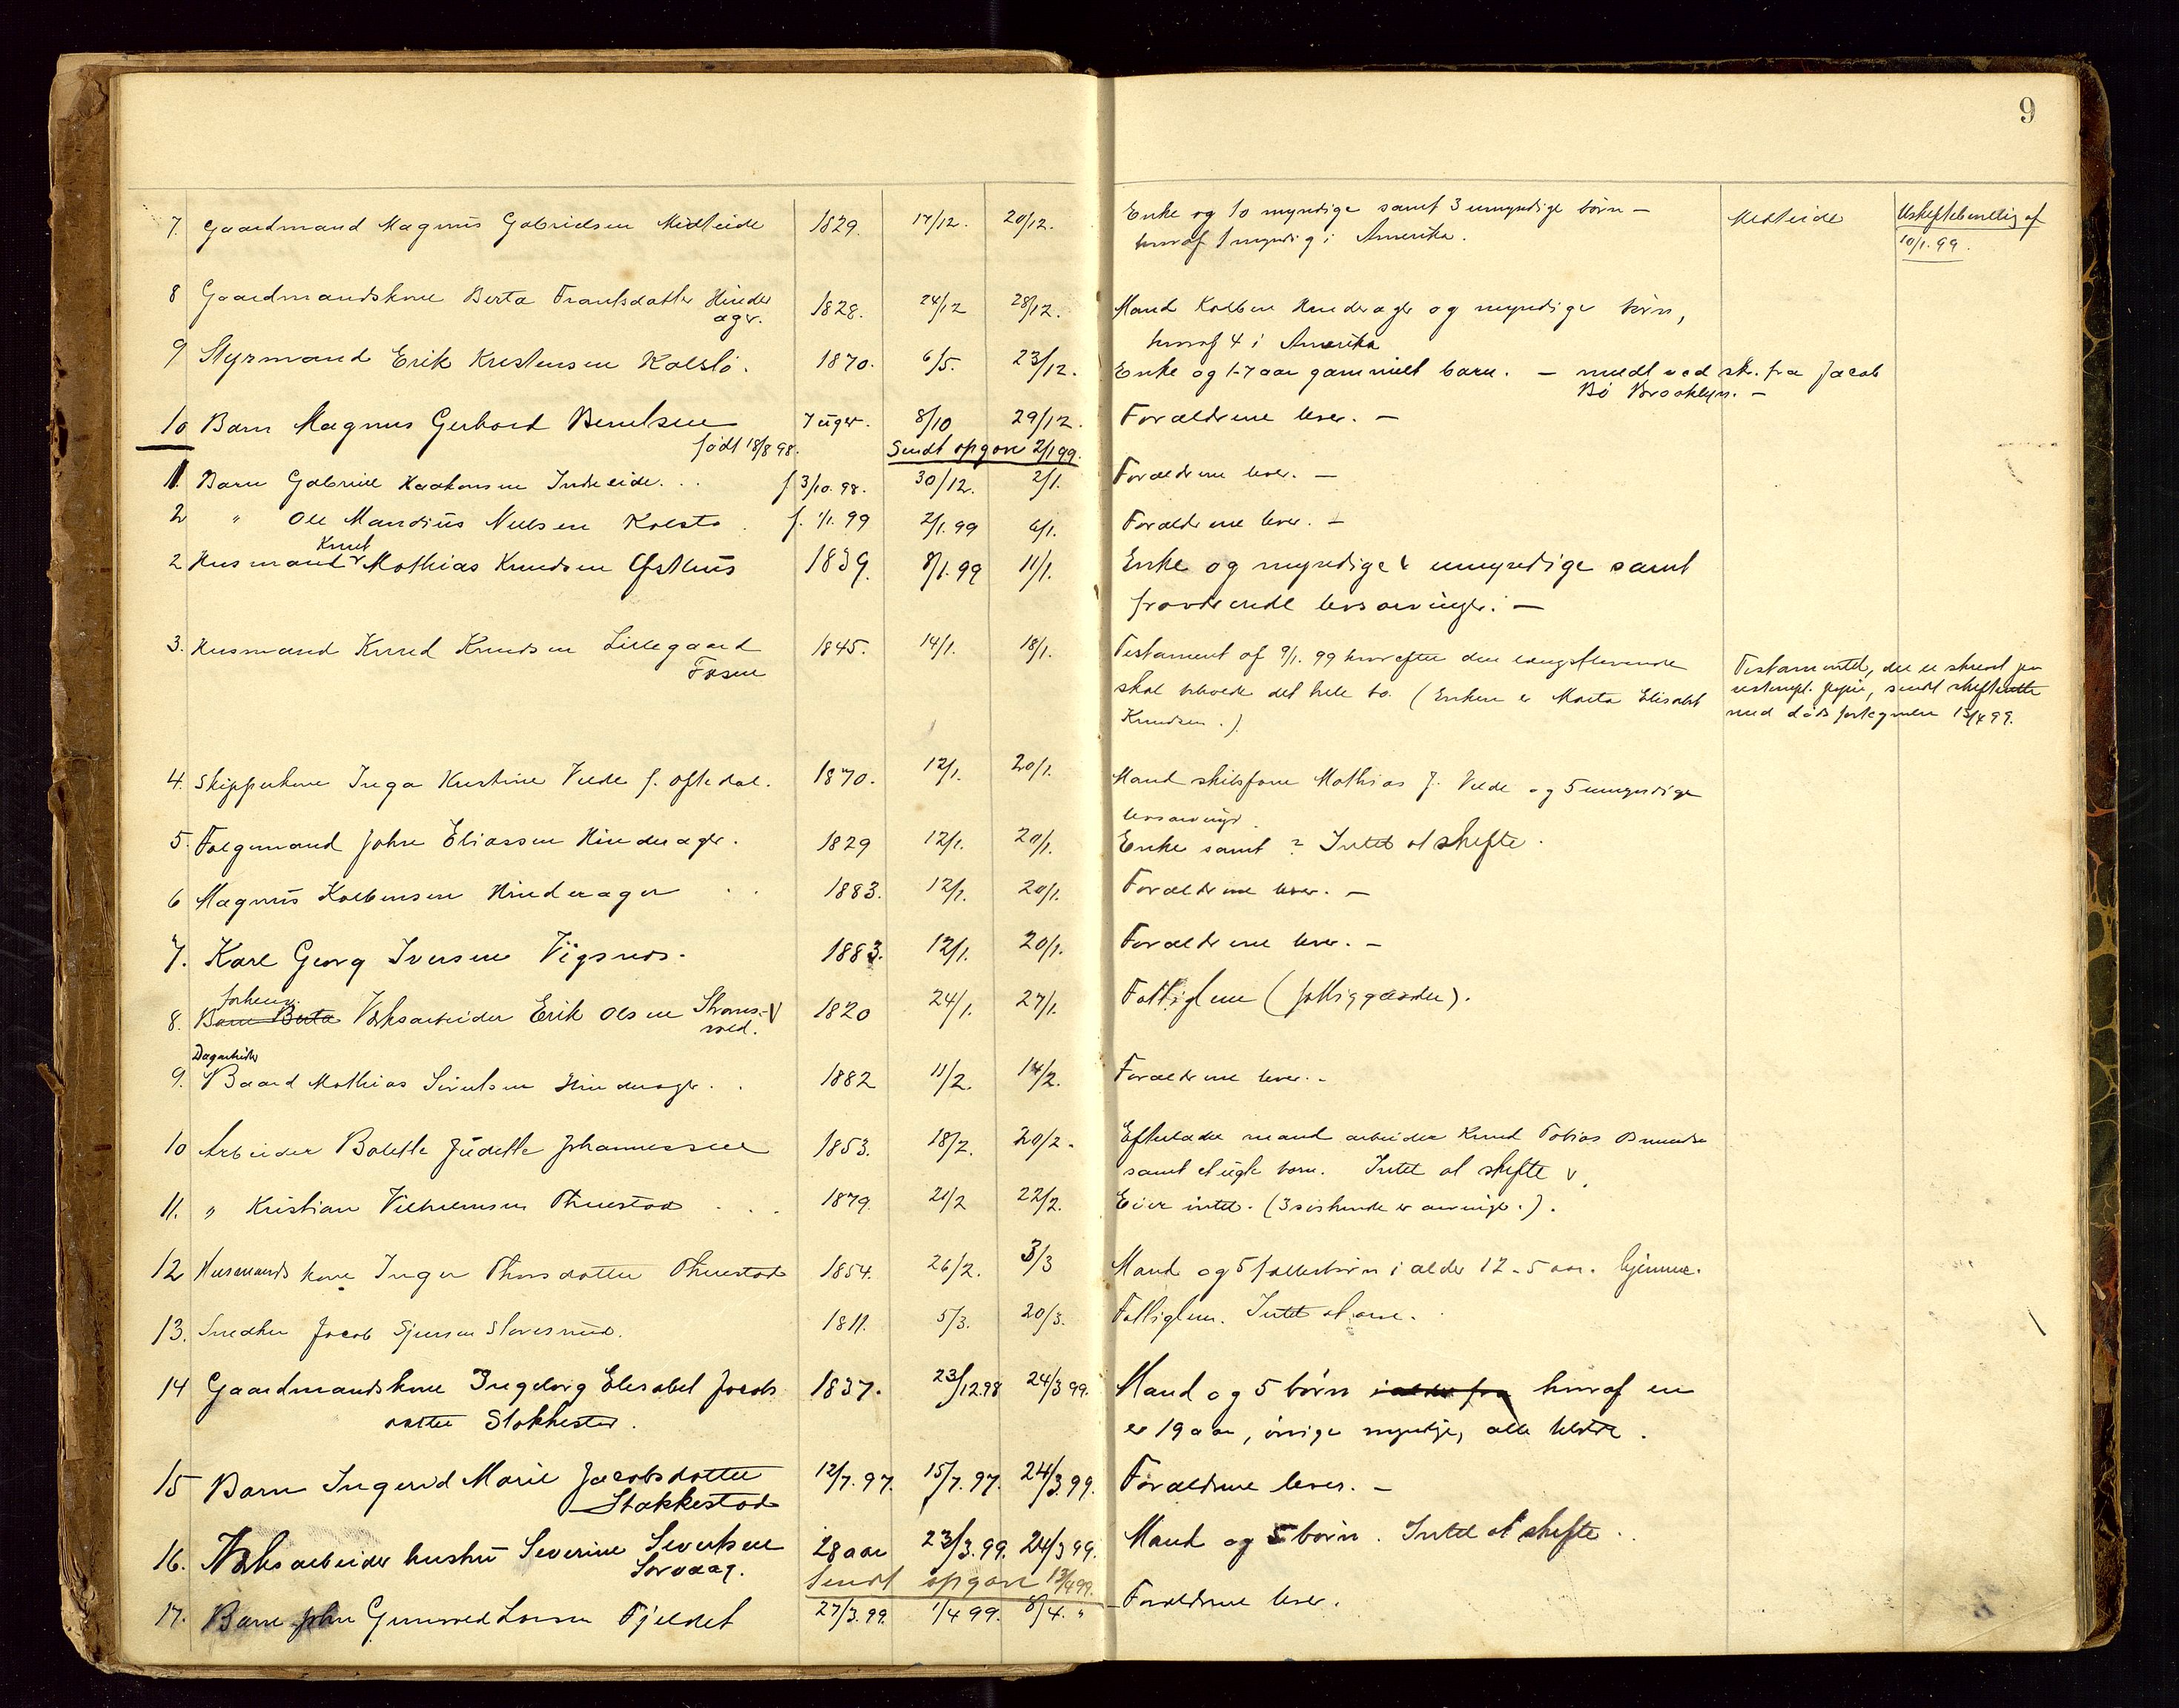 9
7. Gaardmand Magnus Gabrielsen Midteide 1829. 17/12. 20/12. Enke og 10 myndige samt 3 umyndige børn – Midteide Uskiftebevillig af
hvoraf 1 myndig i Amerika. 10/1. 99.
8 Gaardmandskone Berta Frantsdatter Hinder
ager. 1828. 24/12 28/12. Mand Kolben Hinderager og myndige børn,
hvoraf 4 i Amerika
9 Styrmand Erik Kristensen Kolstø. 1870. 6/5. 23/12. Enke og 1-7 aar gammelt barn. – meldt ved sk. fra Jacob
Bø Brooklyn. –
10 Barn Magnus Gerhard Berntsen 7 uger. 8/10 29/12. Forældrene lever. –
født 18/8 98. Sendt opgave 2/1 99.
1 Barn Gabriel Haakonsen Indreeide. . . f 3/10. 98. 30/12. 2/1. Forældrene lever. –
2 " Ole Mandius Nilsen Kolstø . f. 1/1. 99 2/1. 99 6/1. Forældrene lever. –
Knut
2 Husmand Mathias Knudsen Østhus 1839. 8/1. 99 11/1. Enke og myndige & umyndige samt
fraværende livsarvinger. –
3. Husmand Knud Knudsen Lillegaard
Fosen 1845. 14/1. 18/1. Testament af 9/1. 99 hvorefter den længstlevende
skal beholde det hele bo. (Enken er Marta Elisabet
Knudsen.)
Testamentet, der er skrevet paa
ustempl. papir, sendt skifteretten
med dødsfortegnelse 13/4 99.
4. Skipperkone Inga Kristine Velde f. Oftedal. 1870. 12/1. 20/1. Mand skibsfører Mathias J. Velde og 5 umyndige
livsarvinger.
5. Følgemand John Eliassen Hinderager. 1829 12/1. 20/1. Enke samt ? Intet at skifte.
6 Magnus Kolbensen Hinderager . . 1883. 12/1. 20/1. Forældrene lever. –
7. Karl Georg Iversen Vigsnes. 1883. 12/1. 20/1. Forældrene lever. –
forhenv.
8. Barn Berta Værksarbeider Erik Olsen Strøms-
vold. 1820 24/1. 27/1. Fattiglem (fattiggaarden).
Dagarbeider
9. Baard Mathias Sivertsen Hinderager. . 1882 11/2. 14/2. Forældrene lever. –
10 Arbeider Bolette Judette Johannessen 1853. 18/2. 20/2. Efterlader mand arbeider Knud Tobias
samt et uægte barn. Intet at skifte
11. " Kristian Vilhelmsen Thuestad . . . 1879. 21/2 22/2. Eier intet. (3 søskende er arvinger.).
12 Husmandskone Inger Thorsdatter Thuestad 1854. 26/2. 3/3 Mand og 5 fællesbørn i alder 12-5 aar. hjemme.
13. Snedker Jacob Sjursen 1811. 5/3. 20/3. Fattiglem. Intet at arve.
14 Gaardmandskone Ingeborg Elisabet Jacobs
datter Stokkestad. 1837. 23/12.98 24/3 99. Mand og 5 børn i alder fra hvoraf en
er 19 aar, øvrige myndige, alle tilstede.
15 Barn Ingerid Marie Jacobsdatter
Stokkestad 12/7. 97. 15/7. 97. 24/3. 99. Forældrene lever. –
16. Værksarbeider hustru Severine Sivertsen
Sørvaag. 28 aar 23/3. 99. 24/3 99. Mand og 5 børn. Intet at skifte.
Sendt opgave 13/4 99.
17. Barn John Gunvald Larsen Fjeldet 27/3. 99. 1/4 99. 8/4. " Forældrene lever.